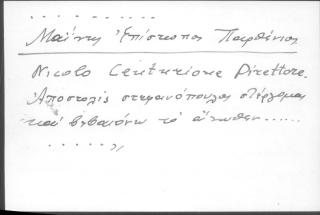 . . . . . . .
Μαΐνης Ἐπίσκοπος Παρθένιος
Nicolo Centurione Direttore.
Ἀποστόλις στεφανόπουλος στέργομαι
καὶ βεβαιόνω τὸ ἄνωθεν......
. . . . . . „